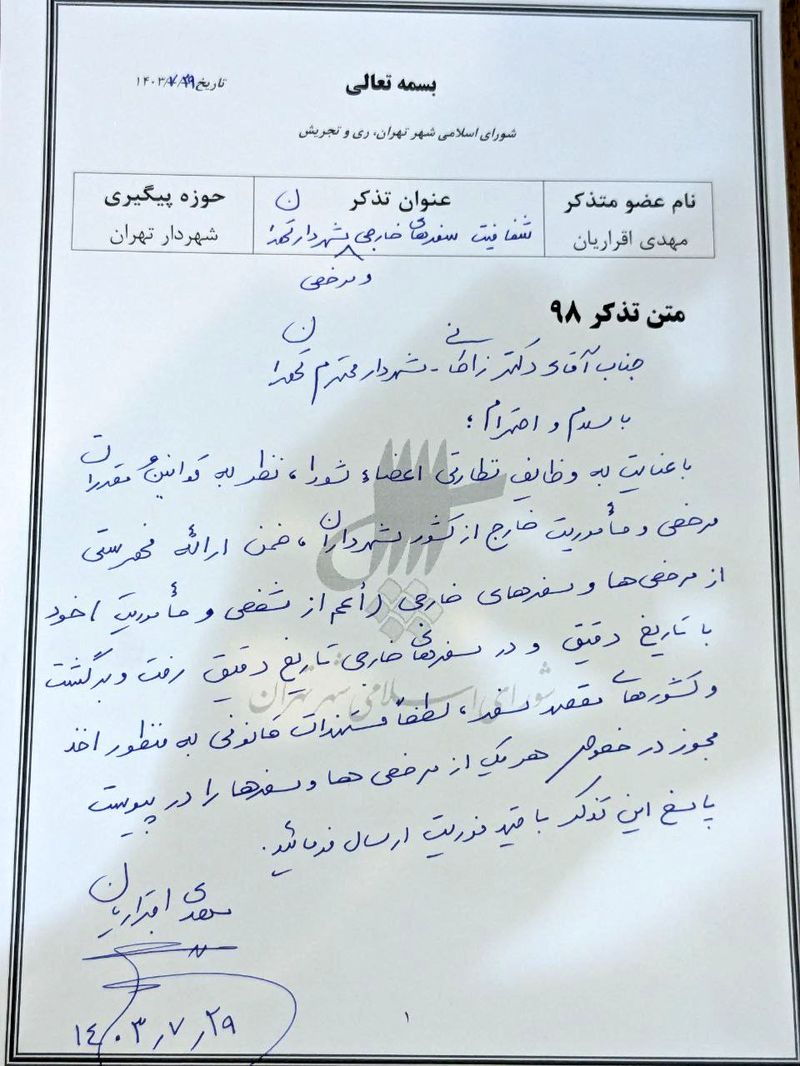 بسمه تعالی
تاریخ ۱۴۰۳/۷/۲۹
شورای اسلامی شهر تهران، ری و تجریش
نام عضو متذکر
عنوان تذکر
حوزه پیگیری
مهدی اقراریان
شفافیت سفرهای خارجی شهردار تهران
و مرخصی
شهردار تهران
متن تذکر ۹۸
جناب آقای دکتر زاکانی - شهردار محترم تهران
با سلام و احترام؛
با عنایت به وظایف نظارتی اعضاء شورا، نظر به قوانین و مقررات
مرخصی و مأموریت خارج از کشور شهرداران، ضمن ارائه فهرستی
از مرخصی‌ها و سفرهای خارجی (أعم از شخصی و مأموریت) خود
با تاریخ دقیق و در سفرهای خارجی تاریخ دقیق رفت و برگشت
و کشورهای مقصد سفر، لطفاً مستندات قانونی به منظور اخذ
مجوز در خصوص هر یک از مرخصی ها و سفرها را در پیوست
پاسخ این تذکر با قید فوریت ارسال فرمائید.
مهدی اقراریان
۱۴۰۳/۷/۲۹
۱
شورای اسلامی شهر تهران